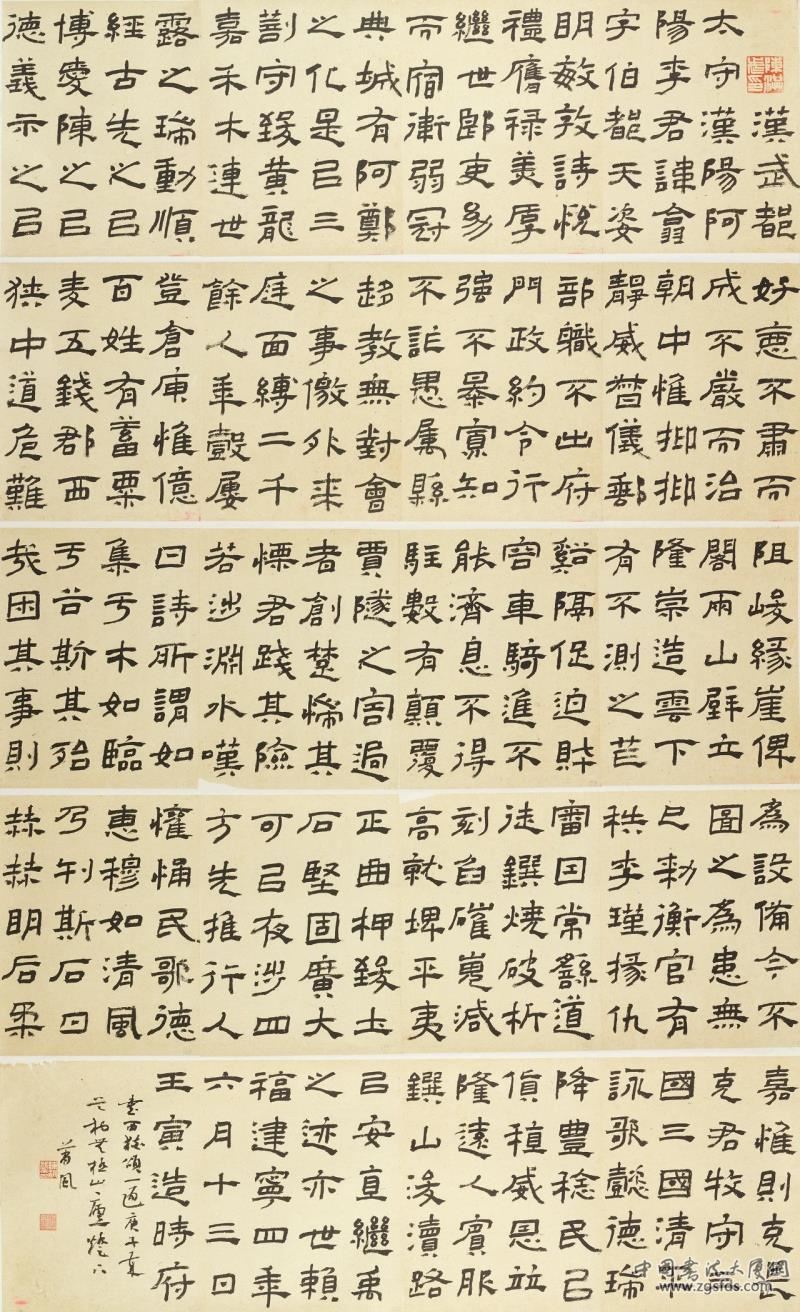 漢武都
太守漢陽阿
陽李君諱翕
字伯都天姿
明敏敦詩悅
禮膺祿美厚
繼世郎吏幼
而宿衛弱冠
典城有阿鄭
之化是㠯三
剖守致黃龍
嘉禾木連世
露之瑞動順
經古先之㠯
博愛陳之㠯
德義示之㠯
好惡不肅而
成不嚴而治
朝中惟抑抑
靜威替儀郵
部職不出府
門政約令行
強不暴寡知
不詐愚屬縣
趍教無對會
之事儌外来
庭面縛二千
餘人年穀屢
登倉庾惟億
百姓有蓄粟
麦五錢郡西
狹中道危難
阻峻緣崖俾
閣兩山壁立
隆崇造雲下
有不測之芒
谿隔促迫財
容車騎進不
能濟息不得
駐數有顛覆
賈隧之害過
者創楚惴其
慄君踐其險
若涉淵水嘆
曰詩所謂如
集于木如臨
于谷斯其殆
哉困其事則
為設備今不
圖之為患無
已勑衡官有
秩李瑾掾仇
審因常繇道
徒鐉燒破析
刻臽磪嵬減
高就埤平夷
正曲柙致土
石堅固廣大
可㠯夜涉四
方先推行人
懽悀民歌德
惠穆如清風
乃刊斯石曰
赫赫明后柔
嘉惟則克長
克君牧守三
國三國清平
詠歌懿德瑞
降豐稔民㠯
貨稙威恩竝
隆遠人賓服
鐉山浚瀆路
㠯安直繼禹
之迹亦世賴
福建寧四年
六月十三日
壬寅造時府
書西狹頌一過庚子夏
中国书法大厦网
www.zgsfds.com